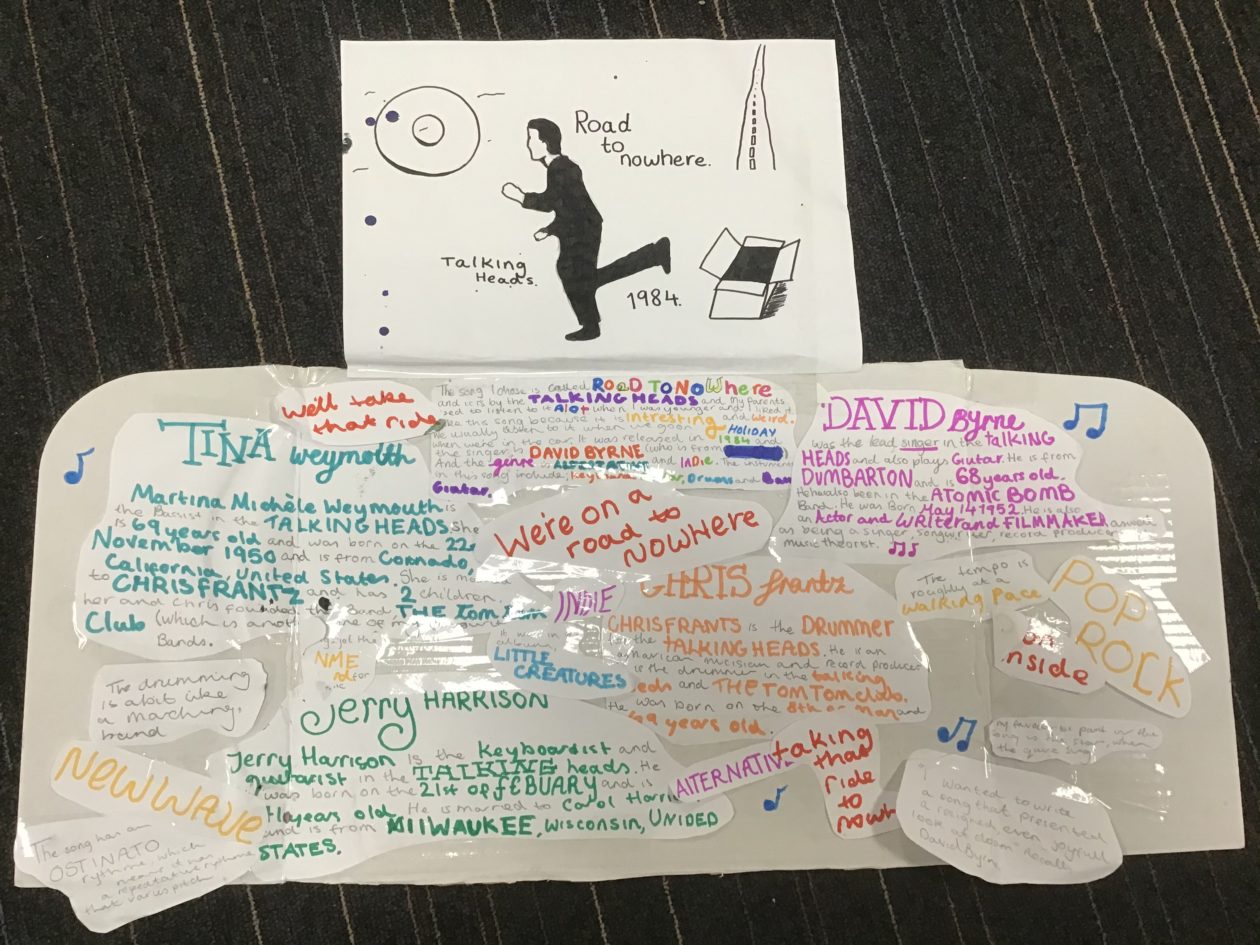 Road
to
nowhere.
Talking
Heads.
1984.
We'll take
that ride
The song I chose is called ROAD TO NOWHERE
and it is by the TALKING HEADS and my parents
used to listen to it Alot when I was younger and I liked it
like this song because it is Intresting and weird.
We usually listen to it when we go on HOLIDAY
when were in the car. It was released in 1984 and
the singer is DAVID BYRNE (who is from
And the genre is and INDie. The
in this song include, Drums and
Guitar.
TINA Weymouth
Martina Michèle Weymouth is
the Bassist in the TALKING HEADS. She
is 69 years old and was born on the 22
November 1950 and is from Coronado,
California, United States. She is
to CHRIS FRANTZ and has 2 children.
her and Chris founded the Band THE Tom Tom
Club (which is
Bands.
DAVID Byrne
was the lead singer in the talking
HEADS and also plays Giutar. He is from
DUMBARTON and is 68 years old.
He has also been in the ATOMIC BOMB
Band. He was Born May 14 1952. He is also
an Actor and WRiter and FILMMAKER
as being a singer, songwriter, record producer
music theorist.
We're on a
road to
NOWHERE
INDIE
CHRIS frantz
CHRIS FRANTS is the DRUMMER
TALKING HEADS. He is an
American micisian and record producer
is the drummer in the talking
and THE TOM TOM club.
He was born on the 8th of May and
69 years old.
The tempo is
roughly at a
walking Pace
POP
ROCK
nside
NME
LITTLE
CREATURES
The drumming
is abit like
a marching
band
Jerry HARRISON
Jerry Harrison is the keyboardist and
guitarist in the TALKING heads. He
was born on the 21st of FEBUARY and is
years old. He is married to Carol
and is from MIlWAUKEE, Wisconsin, UNIDED
STATES.
AlTERNATIV
taking
that
ride
to
NEW WAVE
The song has an
OSTINATO
rythme, which
means it has
a repetative rythme
that varies pitch.
"I wanted to write
a song that presented
a resigned, even joyfull
look at doom" Recalls
David Byrne